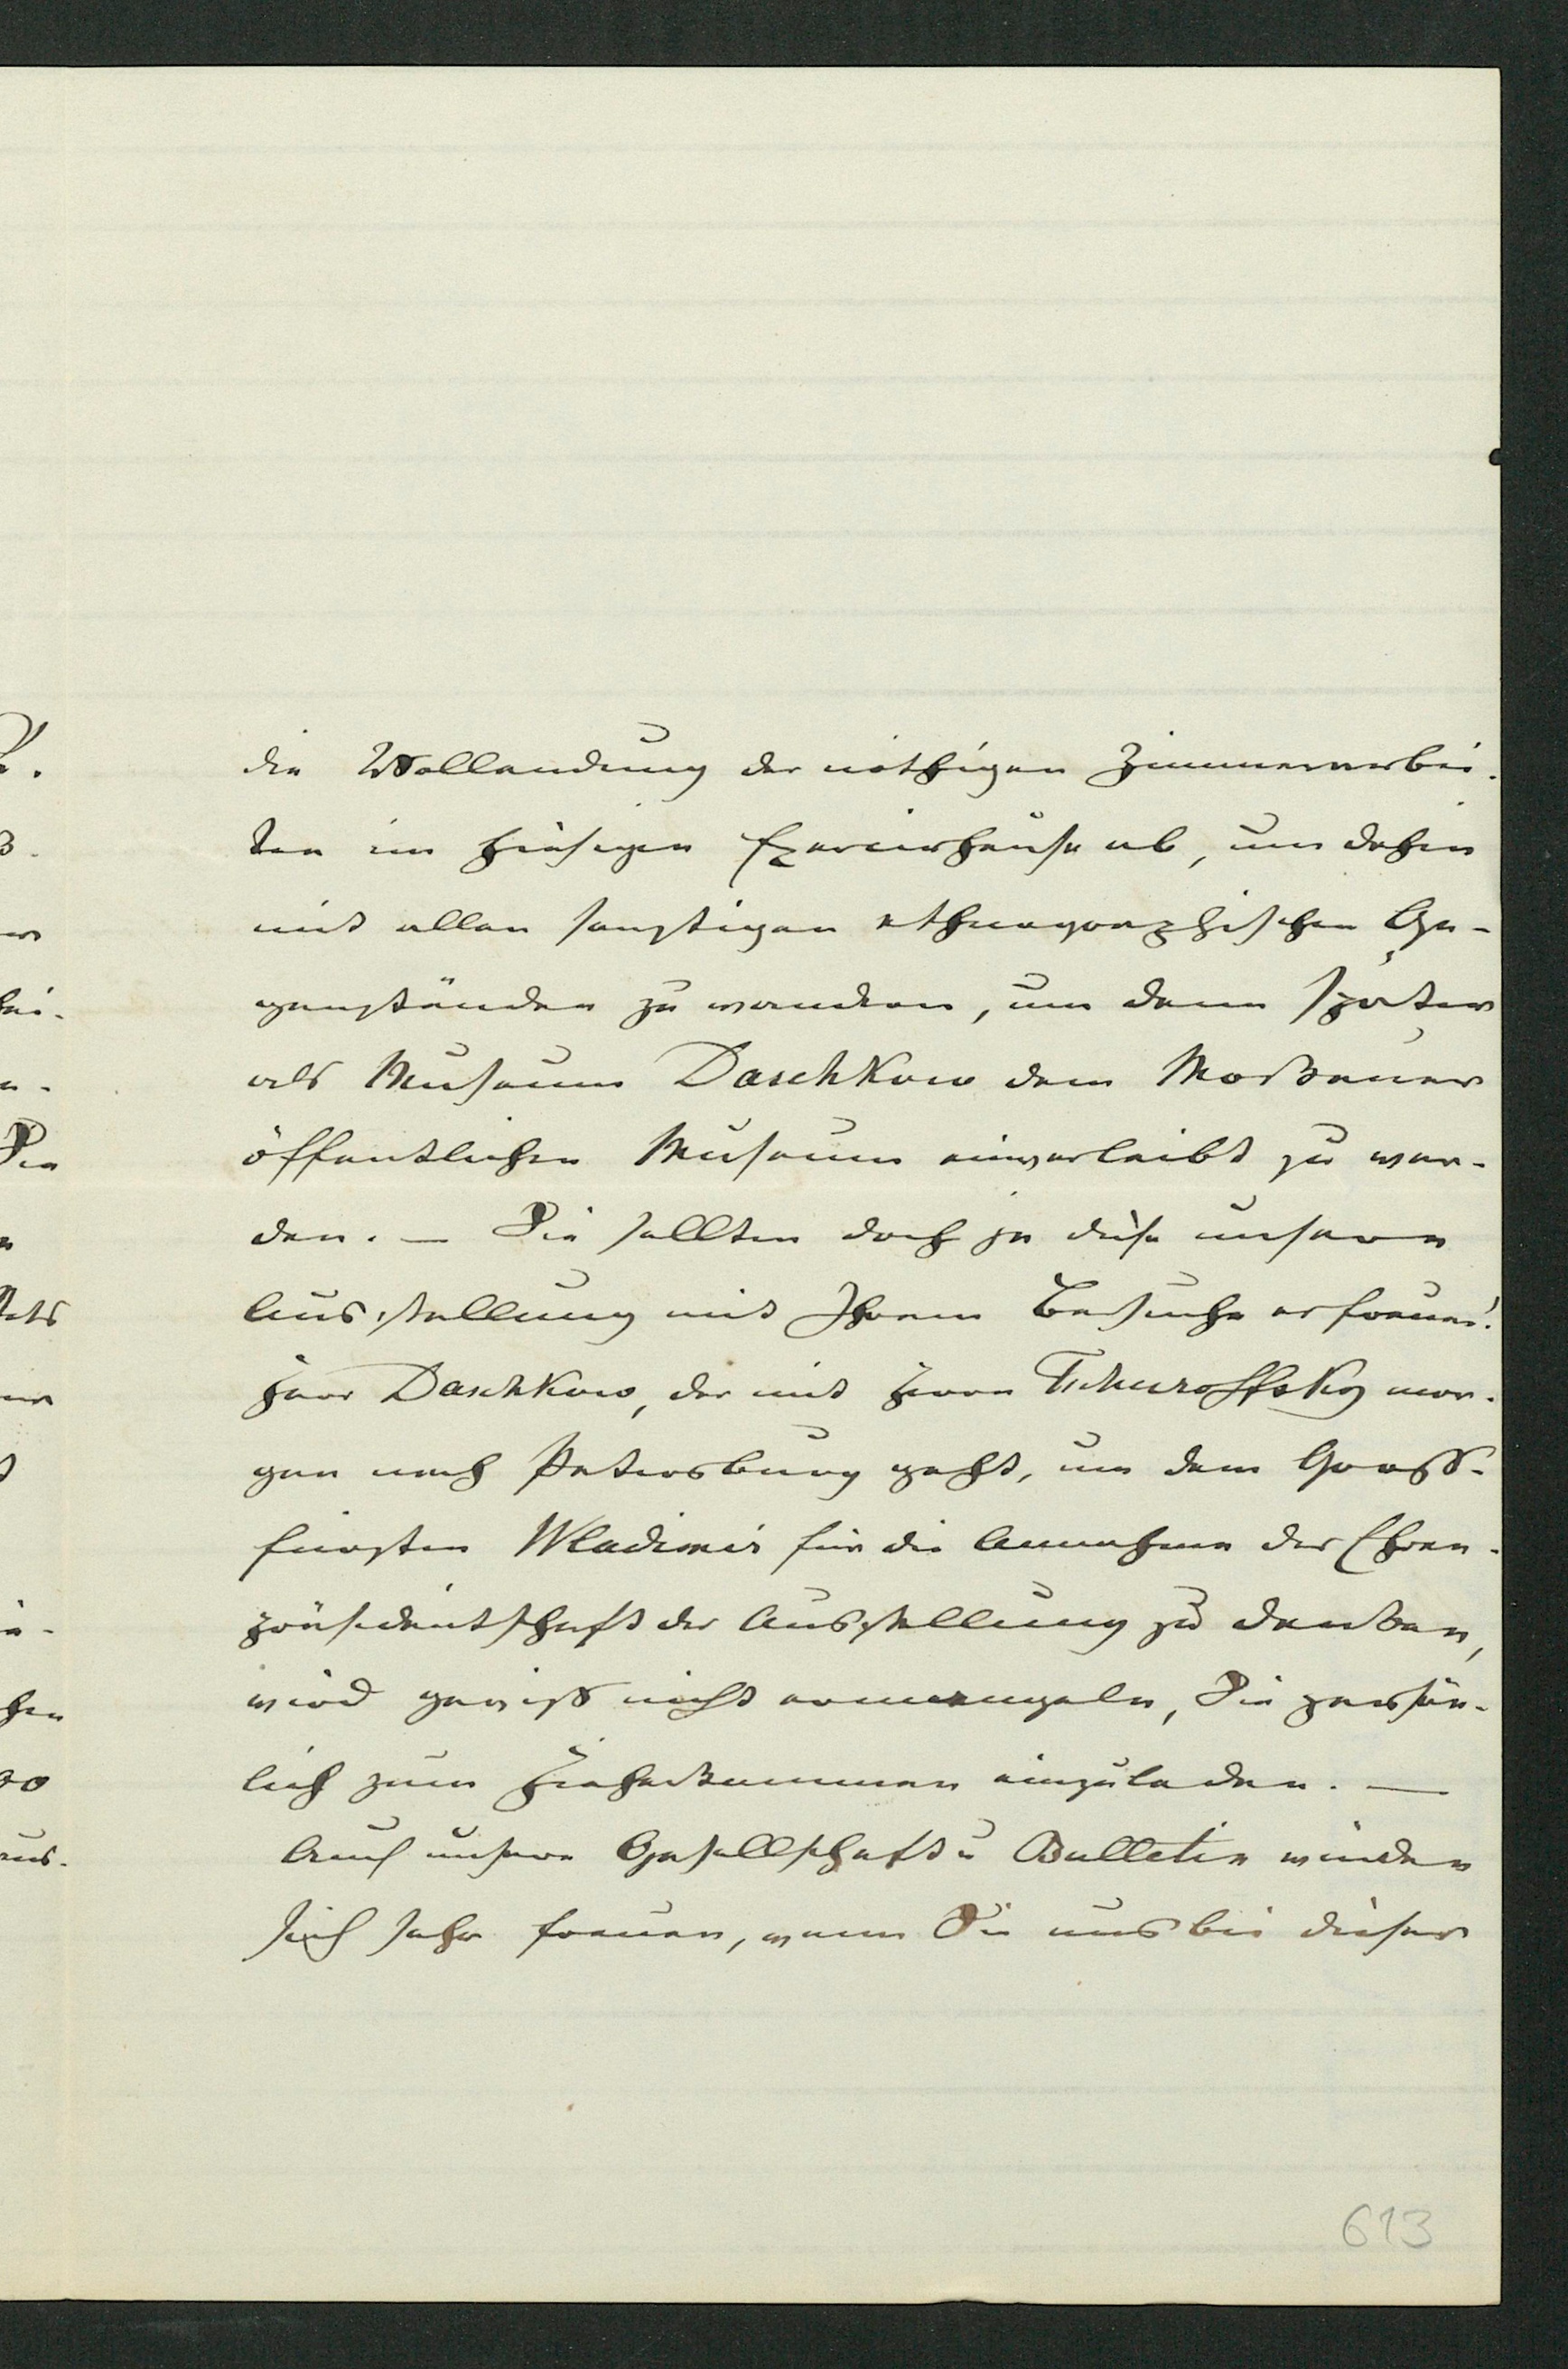 die Vollendung der nöthigen Zimmerarbei-
ten im hiesigen Exercirhause ab, um dahin
mit allen sonstigen ethnographischen Ge-
genständen zu wandern, um dann später
als Museum Daschkow dem Moskauer
öffentlichen Museum einverleibt zu wer-
den. — Sie sollten doch ja diese unsere
Ausstellung mit Ihrem Besuche erfreuen!
Herr Daschkow, der mit Herrn Tschuroffsky mor-
gen nach Petersburg geht, um dem Gross-
fürsten Wladimir für die Annahme der Ehren-
präsidentschaft der Ausstellung zu danken,
wird gewiss nicht ermangeln, Sie persön-
lich zum Hieherkommen einzuladen. —
Auch unsere Gesellschaft u Bulletin würden
sich sehr freuen, wenn Sie uns bei dieser
613